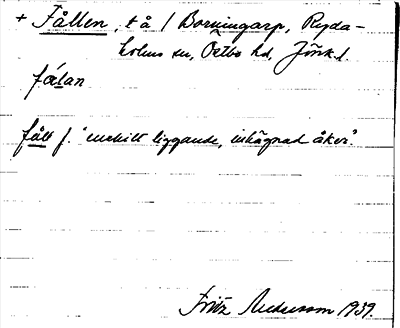 + Fållen, tå / Borningarp, Rydaholms sn, Östbo hd, Jönk. l.
fɷ́lan
fåll f. "enskilt liggande, inhägnad åker".
Fritz Andersson 1939.